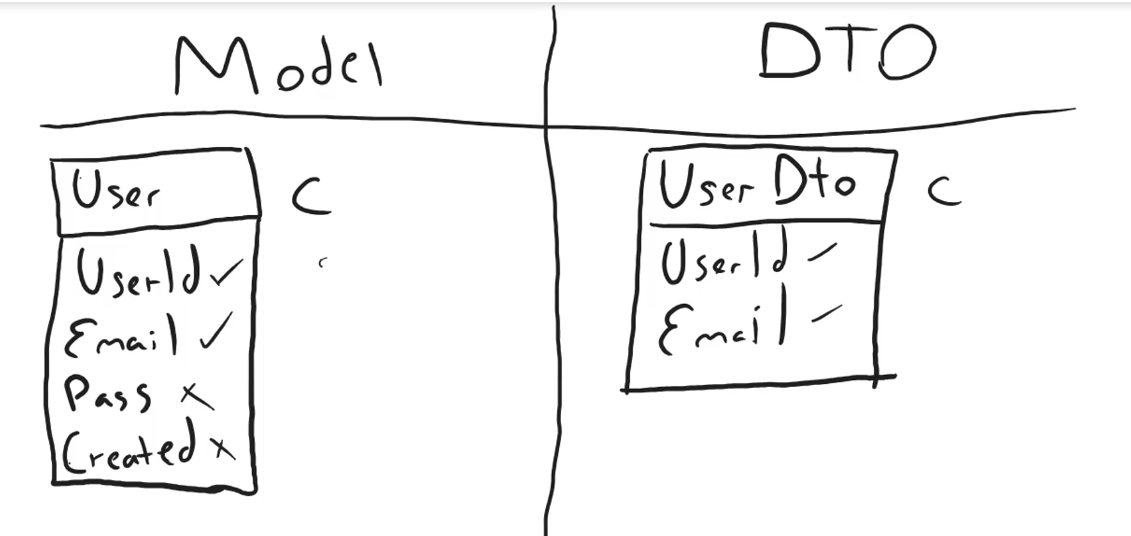 Model
DTO
User C
UserId ✓
Email ✓
Pass x
Created x
User Dto C
UserId -
Email -